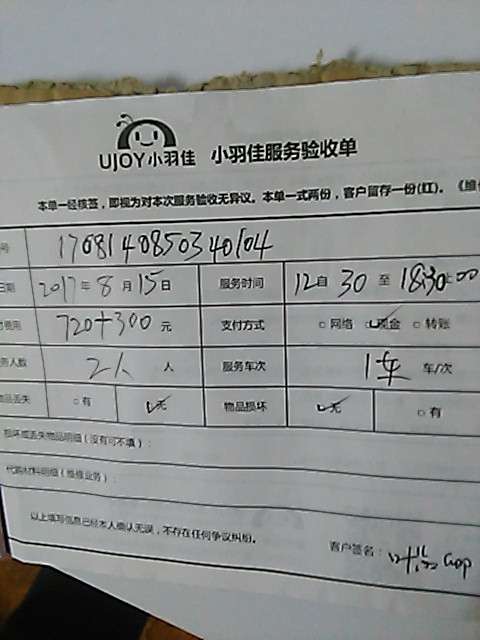 UJOY小羽佳 小羽佳服务验收单
本单一经核签，即视为对本次服务验收无异议。本单一式两份，客户留存一份(红)。《维
号 1708140850340104
日期 2017年8月15日 服务时间 12自30至18:30
费用 720+300元 支付方式 网络 现金 转账
务人数 2人 人 服务车次 1车 车/次
物品丢失 有 无 物品损坏 无 有
损坏或丢失物品明细（没有可不填）：
代购材料明细（维修业务）：
以上填写信息已经本人确认无误，不存在任何争议纠纷。
客户签名：